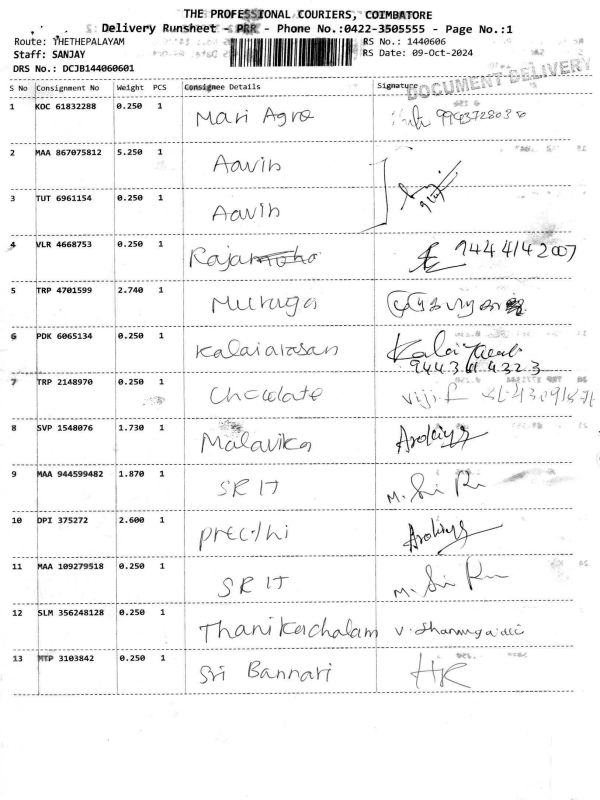 THE PROFESSIONAL COURIERS, COIMBATORE
Delivery Runsheet - PRR - Phone No.:0422-3505555 - Page No.:1
Route: THETHEPALAYAM
RS No.: 1440606
Staff: SANJAY
RS Date: 09-Oct-2024
DRS No.: DCJB144060601
DOCUMENT DELIVERY
S No Consignment No Weight PCS Consignee Details Signature
1 KOC 61832288 0.250 1 Mari Agro
2 MAA 867075812 5.250 1 Aavin
3 TUT 6961154 0.250 1 Aavin
4 VLR 4668753 0.250 1 9444142007
5 TRP 4701599 2.740 1 Muruga
6 PDK 6065134 0.250 1 Kalaiarasan Kalai
7 TRP 2148970 0.250 1 Chocolate Viji.
8 SVP 1548076 1.730 1 Malavika Arokiya
9 MAA 944599482 1.870 1 SR IT
10 DPI 375272 2.600 1 Preethi Arokiya
11 MAA 109279518 0.250 1 SR IT
12 SLM 356248128 0.250 1 Thanikachalam
13 MTP 3103842 0.250 1 Sri Bannari HR